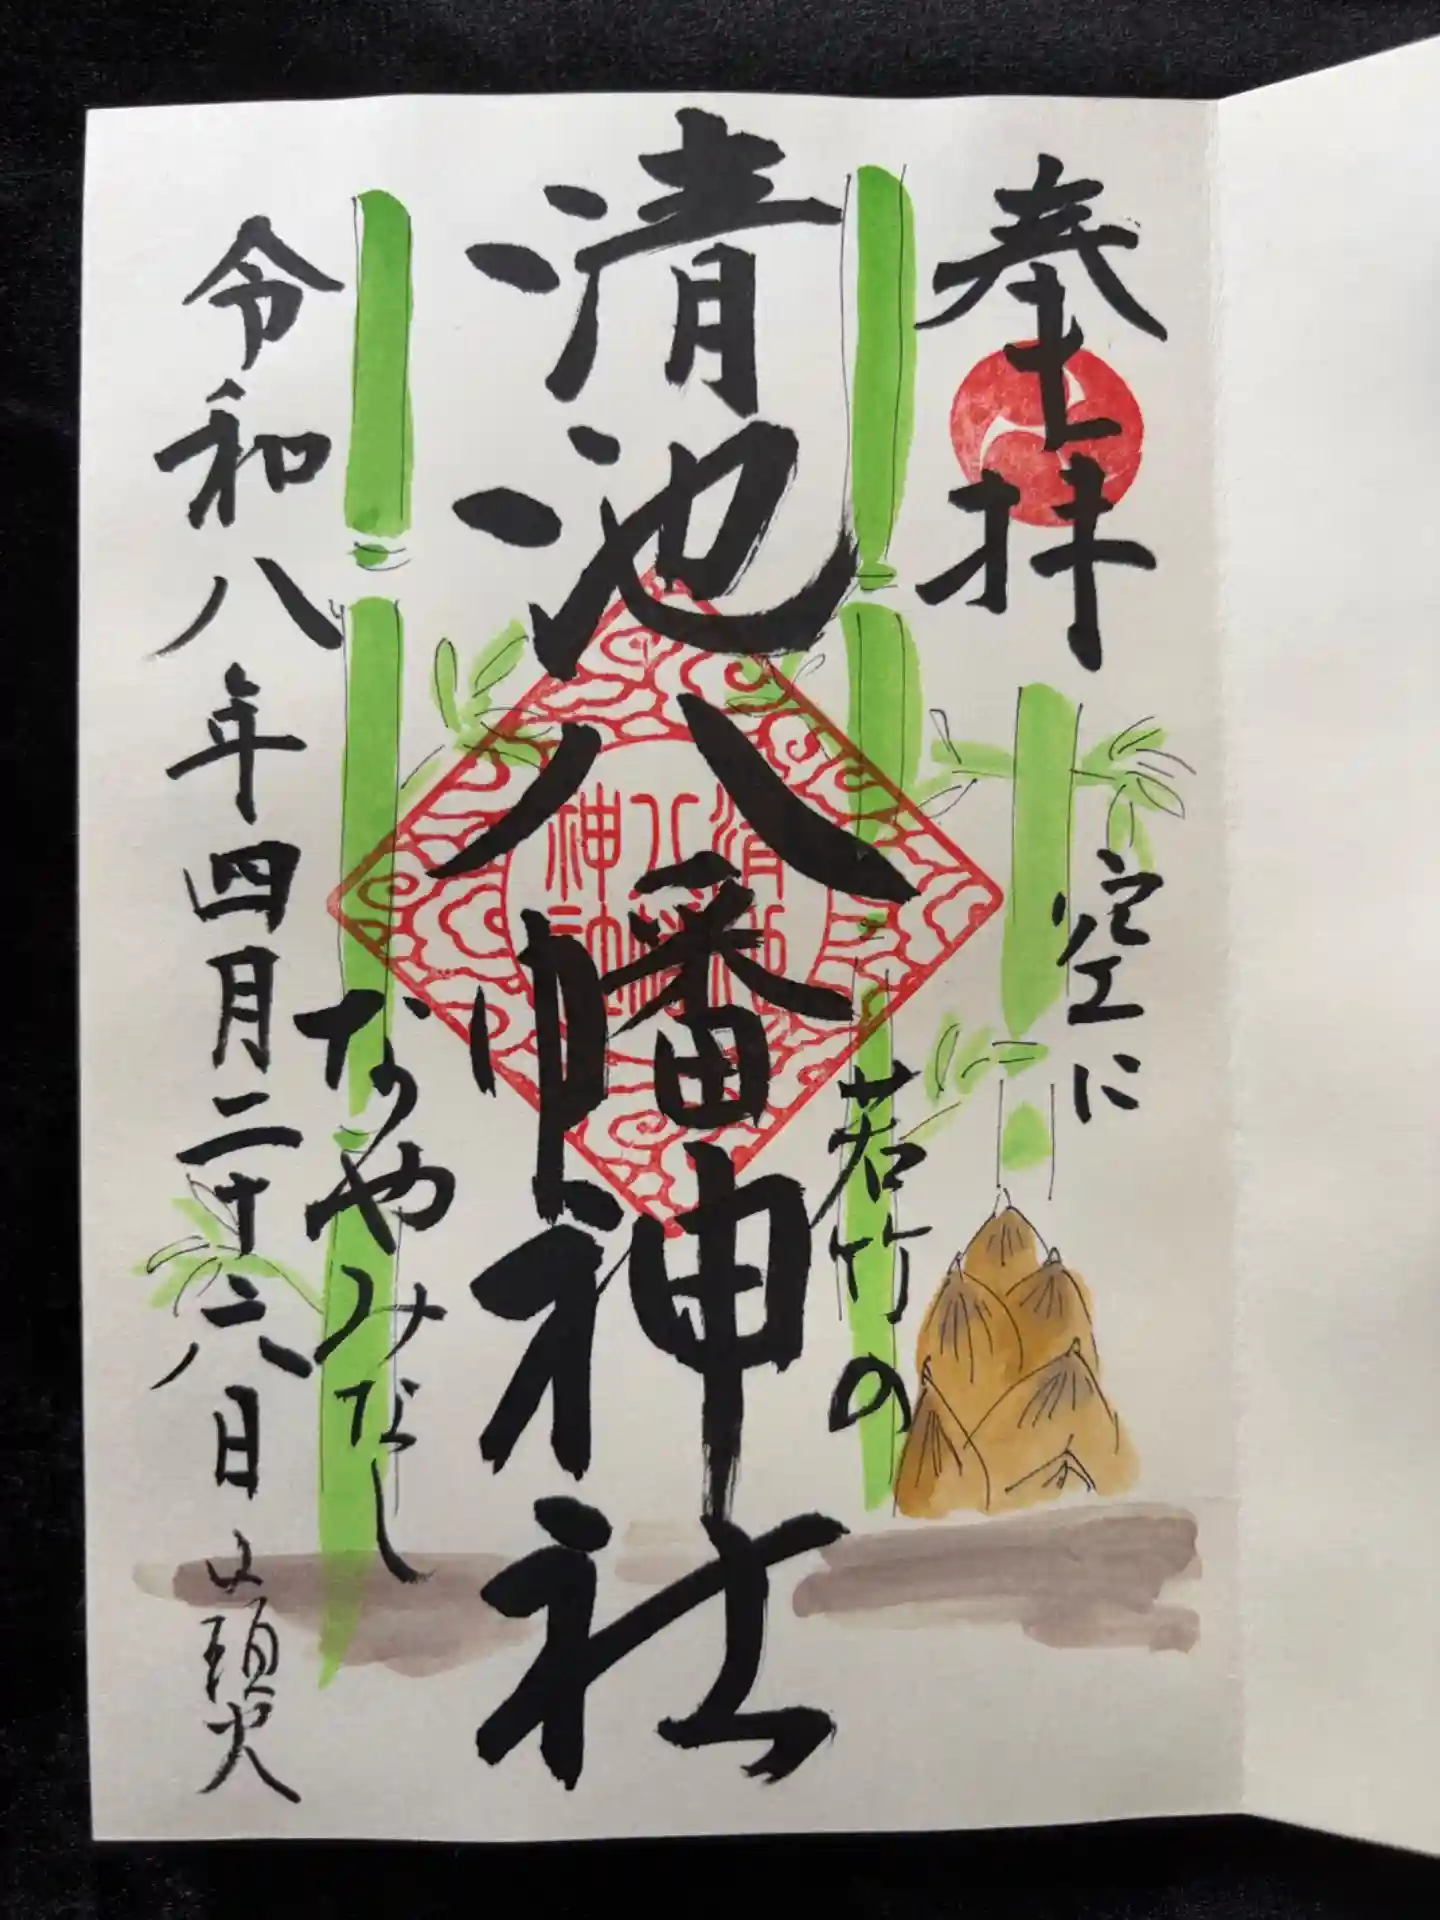 奉拝
空に
若竹の
清池八幡神社
清池
八幡
神社
なやみなし
令和八年四月二十六日